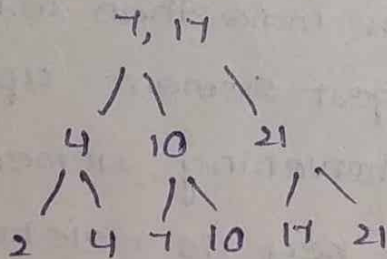 7, 17
4 10 21
2 4 7 10 17 21